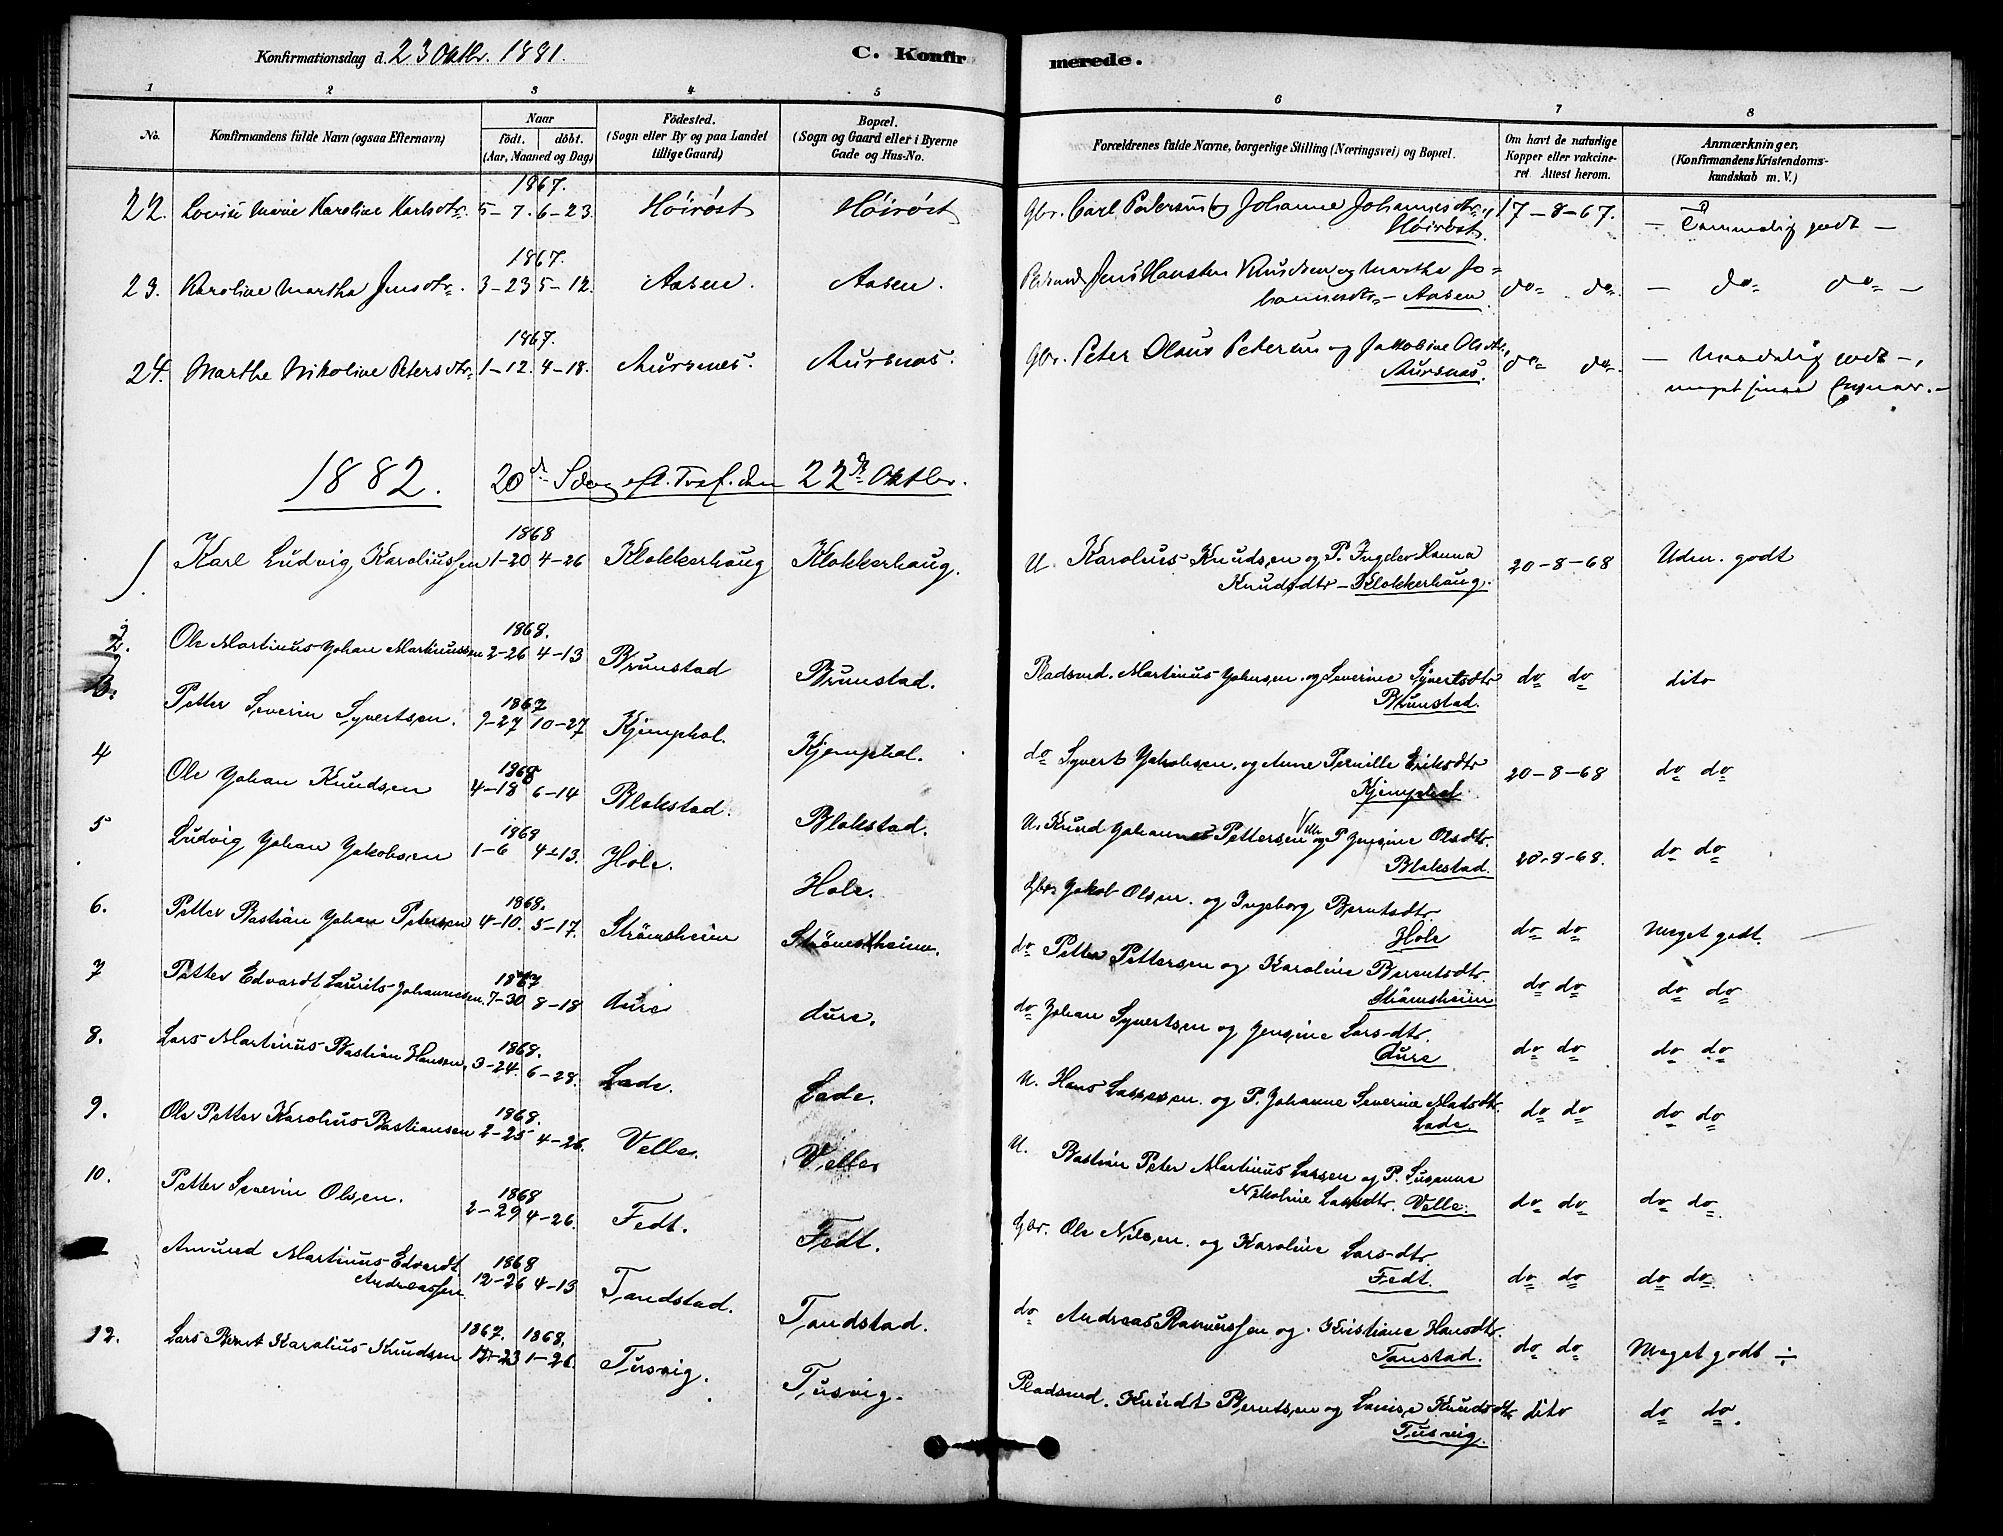 Konfirmationsdag d. 23 Oktbr. 1881.
C. Konfirmerede.
1 2 3 4 5 6 7 8
No. Konfirmandens fulde Navn (ogsaa Efternavn) Naar födt. döbt. (Aar, Maaned og Dag)
Födested. (Sogn eller By og paa Landet tillige Gaard)
Bopæl. (Sogn og Gaard eller i Byerne Gade og Hus-No.
Forældrenes fulde Navne, borgerlige Stilling (Næringsvei) og Bopæl.
Om havt de naturlige Kopper eller vakcineret Attest herom.
Anmærkninger. (Konfirmandens Kristendomskundskab m. V.)
1867.
22. Lovise Marie Karoline Karlsdtr. 5-7. 6-23. Höiröst Höiröst Gbr. Carl Pedersen og Johanne Johannesdtr. 17-8-67. - Temmelig godt -
Höiröst.
1867.
23. Karoline Martha Jensdtr. 3-23 5-12. Aasen. Aasen. Jens Hansten Knudsen og Martha Johannesdtr - Aasen do do - do do -
1867.
24. Marthe Nikoline Petersdtr 1-12. 4-18. Aursnes. Aursnæs. Gbr. Peter Olaus Petersen og Jakobine Olsdtr, do do - Maadelig godt -,
Aursnæs. meget
1882. 20de Sdag eft. Tref. den 22de Oktbr.
1868
1. Karl Ludvig Karoliussen 1-20 4-26 Klokkerhaug Klokkerhaug. U. Karolius Knudsen og P. Ingeborg Hanna 20-8-68 Uden. godt
Knudsdtr - Klokkerhaug.
1868.
2. Ole Martinus Johan Martinussen 2-26 4-13 Brunstad Brunstad. Pladsmd. Martinus Johnsen og Severine Syvertsdtr do do dito
Brunstad.
1867
3. Petter Severin Syvertsen. 9-27 10-27 Kjemphol. Kjemphol. do Syvert Jakobsen. og Anne Pernille Eriksdtr 20-8-68 do do
Kjemphol
1868
4 Ole Johan Knudsen 4-18 6-14 Blakstad. Blakstad. U. Knud Johannes Pettersen Velle og P. Jensine Olsdtr. 20-8-68. do do
Blakstad.
1868
5 Ludvig Johan Jakobsen 1-6 4-13. Hole. Hole. Gbr. Jakob Olsen. og Ingeborg Berntsdtr. do do Meget godt.
Hole
1868.
6. Petter Bastian Johan Petersen 4-10. 5-17. Strömsheim Strömsheim. do Petter Pettersen og Karoline Berentsdtr. do do do do
Strömsheim
1867
7 Petter Edvardt Laurits Johannesen. 7-30 8-18 Aure Aure. do Johan Syvertsen og Jensine Larsdtr. do do do do
Aure
1868.
8. Lars Martinus Bastian Hansen. 3-24. 6-28. Lade. Lade. U. Hans Larsen. og P. Johanne Severine Matsdtr. do do do do
Lade.
1868.
9. Ole Petter Karolius Bastiansen 2-25 4-26. Velle. Velle U. Bastian Peter Martinus Larsen og P. Susanne do do do do.
Nikoline Larsdtr. Velle.
1868
10. Petter Severin Olsen. 2-29 4-26. Fedt. Fedt. Gbr. Ole Nilsen. og Karoline Larsdtr. do do do do.
Fedt.
1868
Amund Martinus Edvardt Andreassen 12-26 4-13 Tandstad. Tandstad. do Andreas Rasmussen og Kristiane Hansdtr. do do Meget godt ÷
Tanstad.
1867. 1868.
12. Lars Bernt Karolius Knudsen 12-23 1-26. Tusvig. Tusvig. Pladsmd. Knudt Berntsen og Lovise Knudsdtr dito do do.
Tusvig.